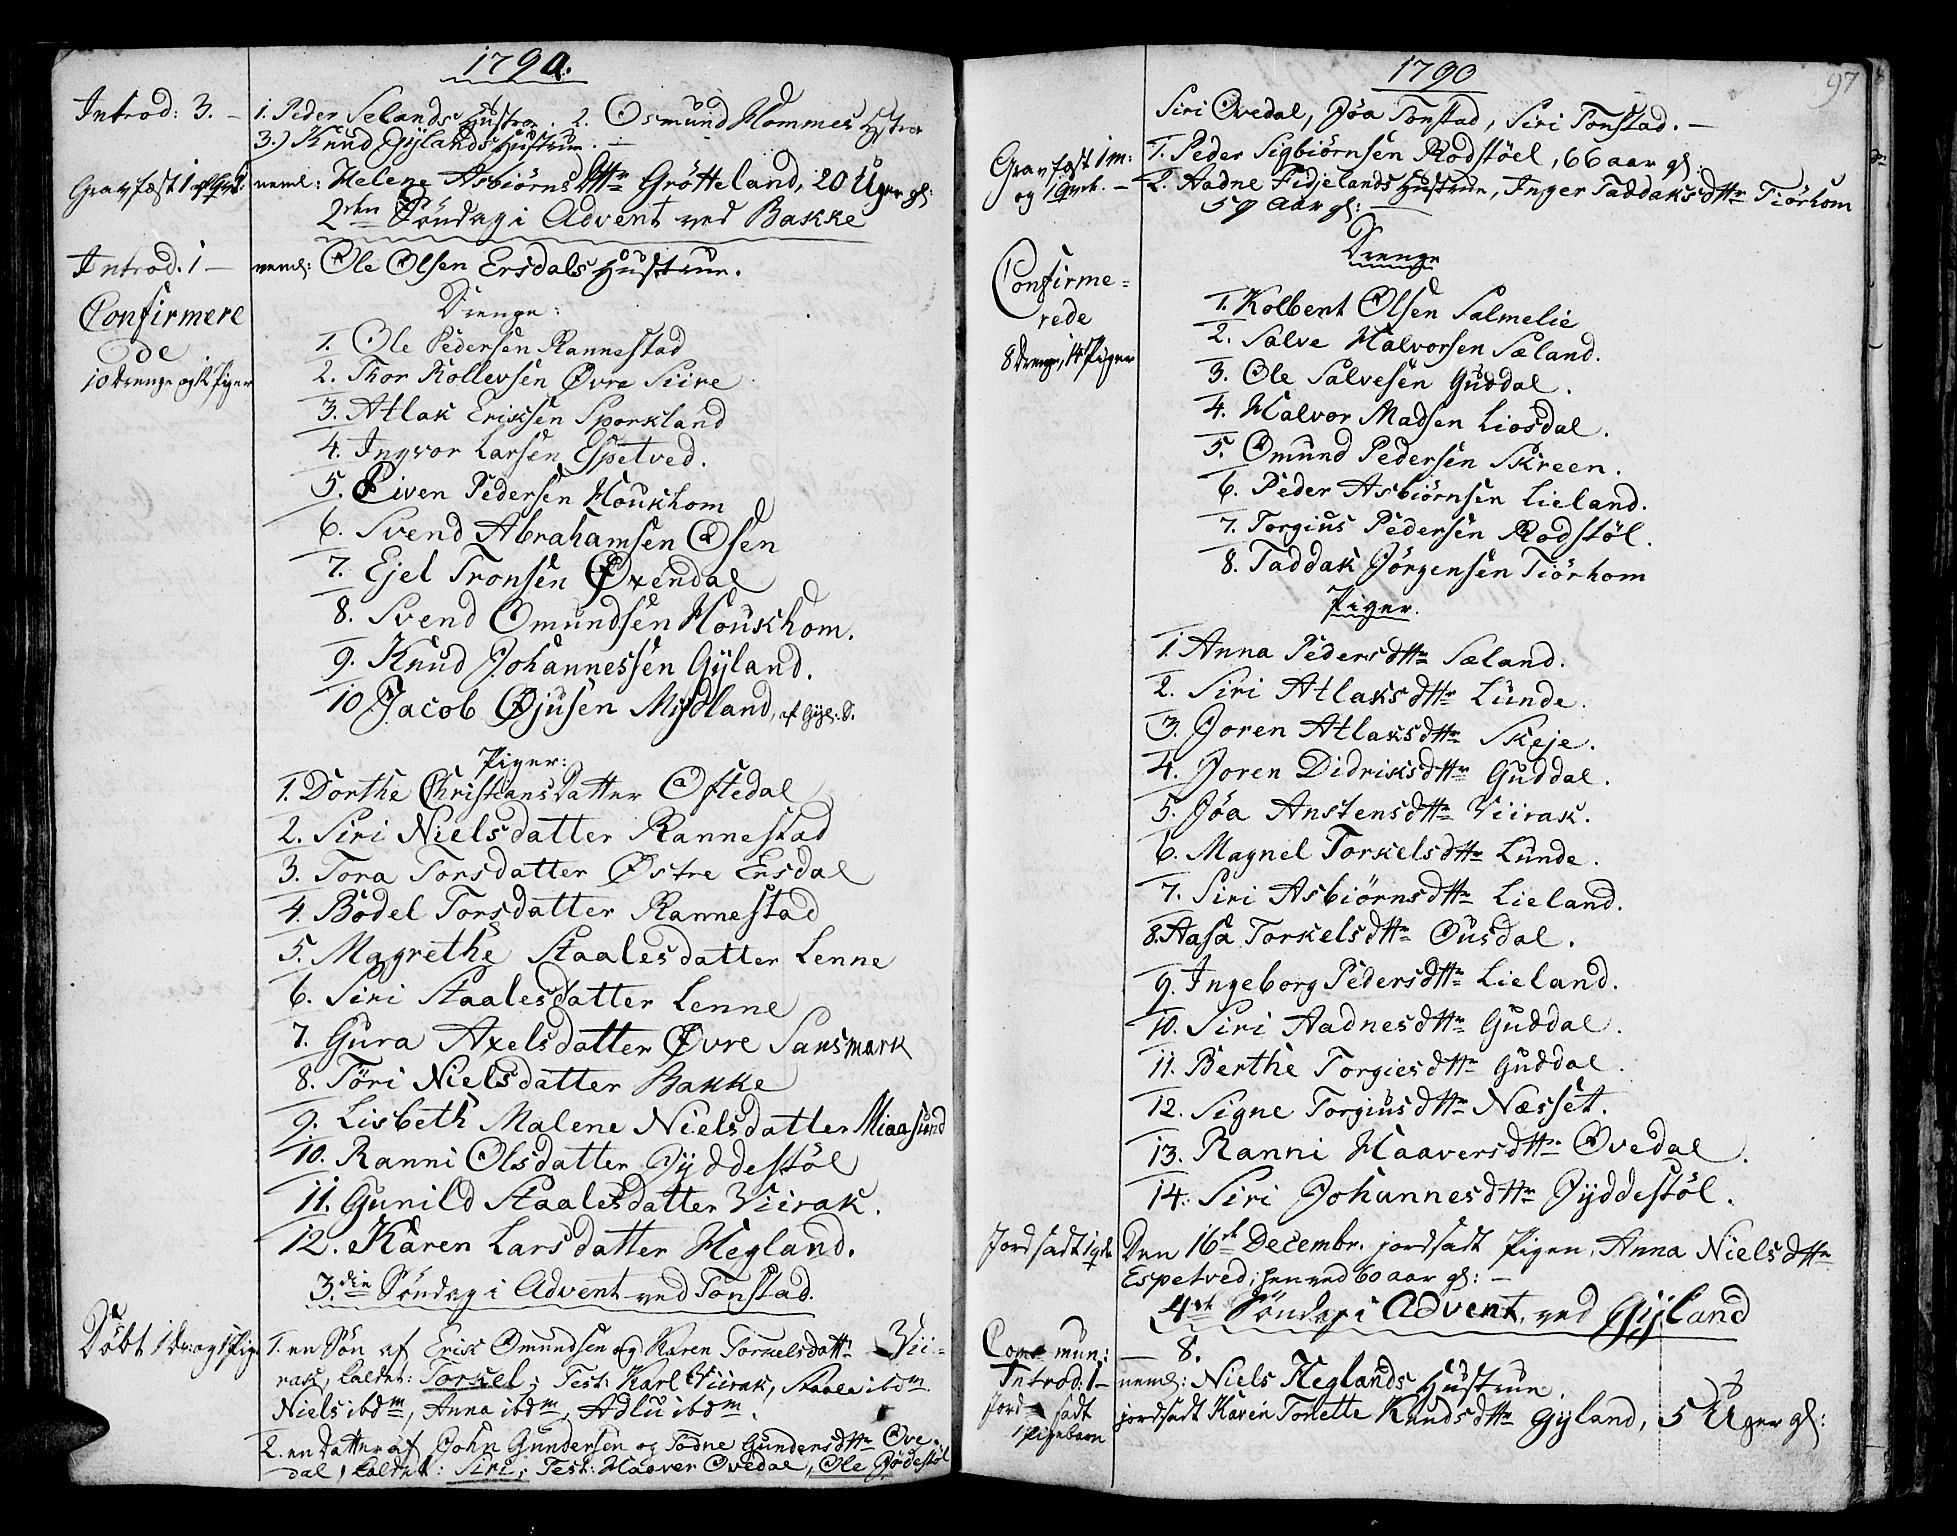 1790.
Introd: 3. – 1. Peder Selands Hustroe. 2. Osmund Hommes Hstroe
3.) Knud Gÿlands Hustrue. –
Gravfæst 1 neml: Helene Asbiörns Dttr Grötteland, 20 Uger gl:
2den Söndag i Advent ved Bakke
Introd. 1 – neml: Ole Olsen Ersdals Hustrue.
Confirmere
de
10 Drenge og 12 Piger
Drenge:
1. Ole Pedersen Rannestad
2. Thor Rollevsen Øvre Siire
3. Atlak Eriksen Sporkland
4. Ingvor Larsen Espetved.
5. Eiven Pedersen Houkhom
6. Svend Abrahamsen Osen
7. Ejel Tronsen Øxendal
8. Svend Omundsen Houskhom.
9. Knud Johannessen Gÿland.
10 Jacob Øjusen Midland, af Gyl: S.
Piger:
1. Dorthe Christiansdatter Oftedal
2. Siri Nielsdatter Rannestad
3. Tora Torsdatter Østre Ersdal
4. Bodel Torsdatter Rannestad
5. Magrethe Staalesdatter Lenne
6. Siri Staalesdatter Lenne
7. Gura Axelsdatter Øvre Sansmark
8. Töri Nielsdatter Bakke
9. Lisbeth Malene Nielsdatter Miaasund
10. Ranni Olsdatter Jÿddestöl
11. Gunild Staalesdatter Viirak.
12. Karen Larsdatter Hegland.
3.die Söndag i Advent ved Tonstad.
Döbt 1 Dr: og 1 Pige 1. en Sön af Erik Omundsen og Karen Torkelsdattr Vii-
rak, kaldet: Torkel; Test: Karl Viirak, Staale ibdm
Niels ibdm, Anna ibdm, Adlu ibdm.
2. en Datter af John Gundersen og Todne Gundersdttr Ove-
dal, kaldet: Siri; Test: Haaver Ovedal, Ole Jödestöl
1790
97
Siri Ovedal, Jöa Tonstad, Siri Tonstad. –
Gravfæst 1 m: 1. Peder Sigbiörnsen Rodstöel, 66 aar gl:
og 1 Qvck. – 2. Aadne Fidjelands Hustrue, Inger Taddaksdttr Tiörhom
59 Aar gl: –
Confirme=
rede
8 Drenge, 14 Piger
Drenge
1. Kolbent Olsen Salmelie
2. Salve Halvorsen Sæland.
3. Ole Salvesen Guddal.
4. Halvor Madsen Liosdal.
5. Omund Pedersen Skreen.
6. Peder Asbiörnsen Lieland.
7. Torgius Pedersen Rodstöl.
8. Taddak Jörgensen Tiörhom
Piger.
1. Anna Pedersdttr Sæland.
2. Siri Atlaksdttr Lunde.
3. Joren Atlaksdttr Skeje.
4. Joren Didriksdttr Guddal.
5. Jöa Anstensdttr Viirak.
6. Magnel Torkelsdttr Lunde.
7. Siri Asbiörnsdttr Lieland.
8. Aasa Torkelsdttr Ousdal.
9. Ingeborg Pedersdttr Lieland.
10. Siri Aadnesdttr Guddal.
11. Berthe Torgiesdttr Guddal.
12. Signe Torgiusdttr Næsset.
13. Ranni Haaversdttr Ovedal.
14. Siri Johannesdttr Jÿddestöl.
Jordsadt 1 Den 16de Decembr. jordsadt Pigen, Anna Nielsdttr
Espetved, henved 60 aar gl: –
4de Söndag i Advent, ved Gÿland
Commun: – 8.
Introd. 1 – neml: Niels Heglands Hustrue.
Jordsadt jordsadt Karin Tonette Knudsdttr Gÿland, 5 Uger gl:
1 Pigebarn